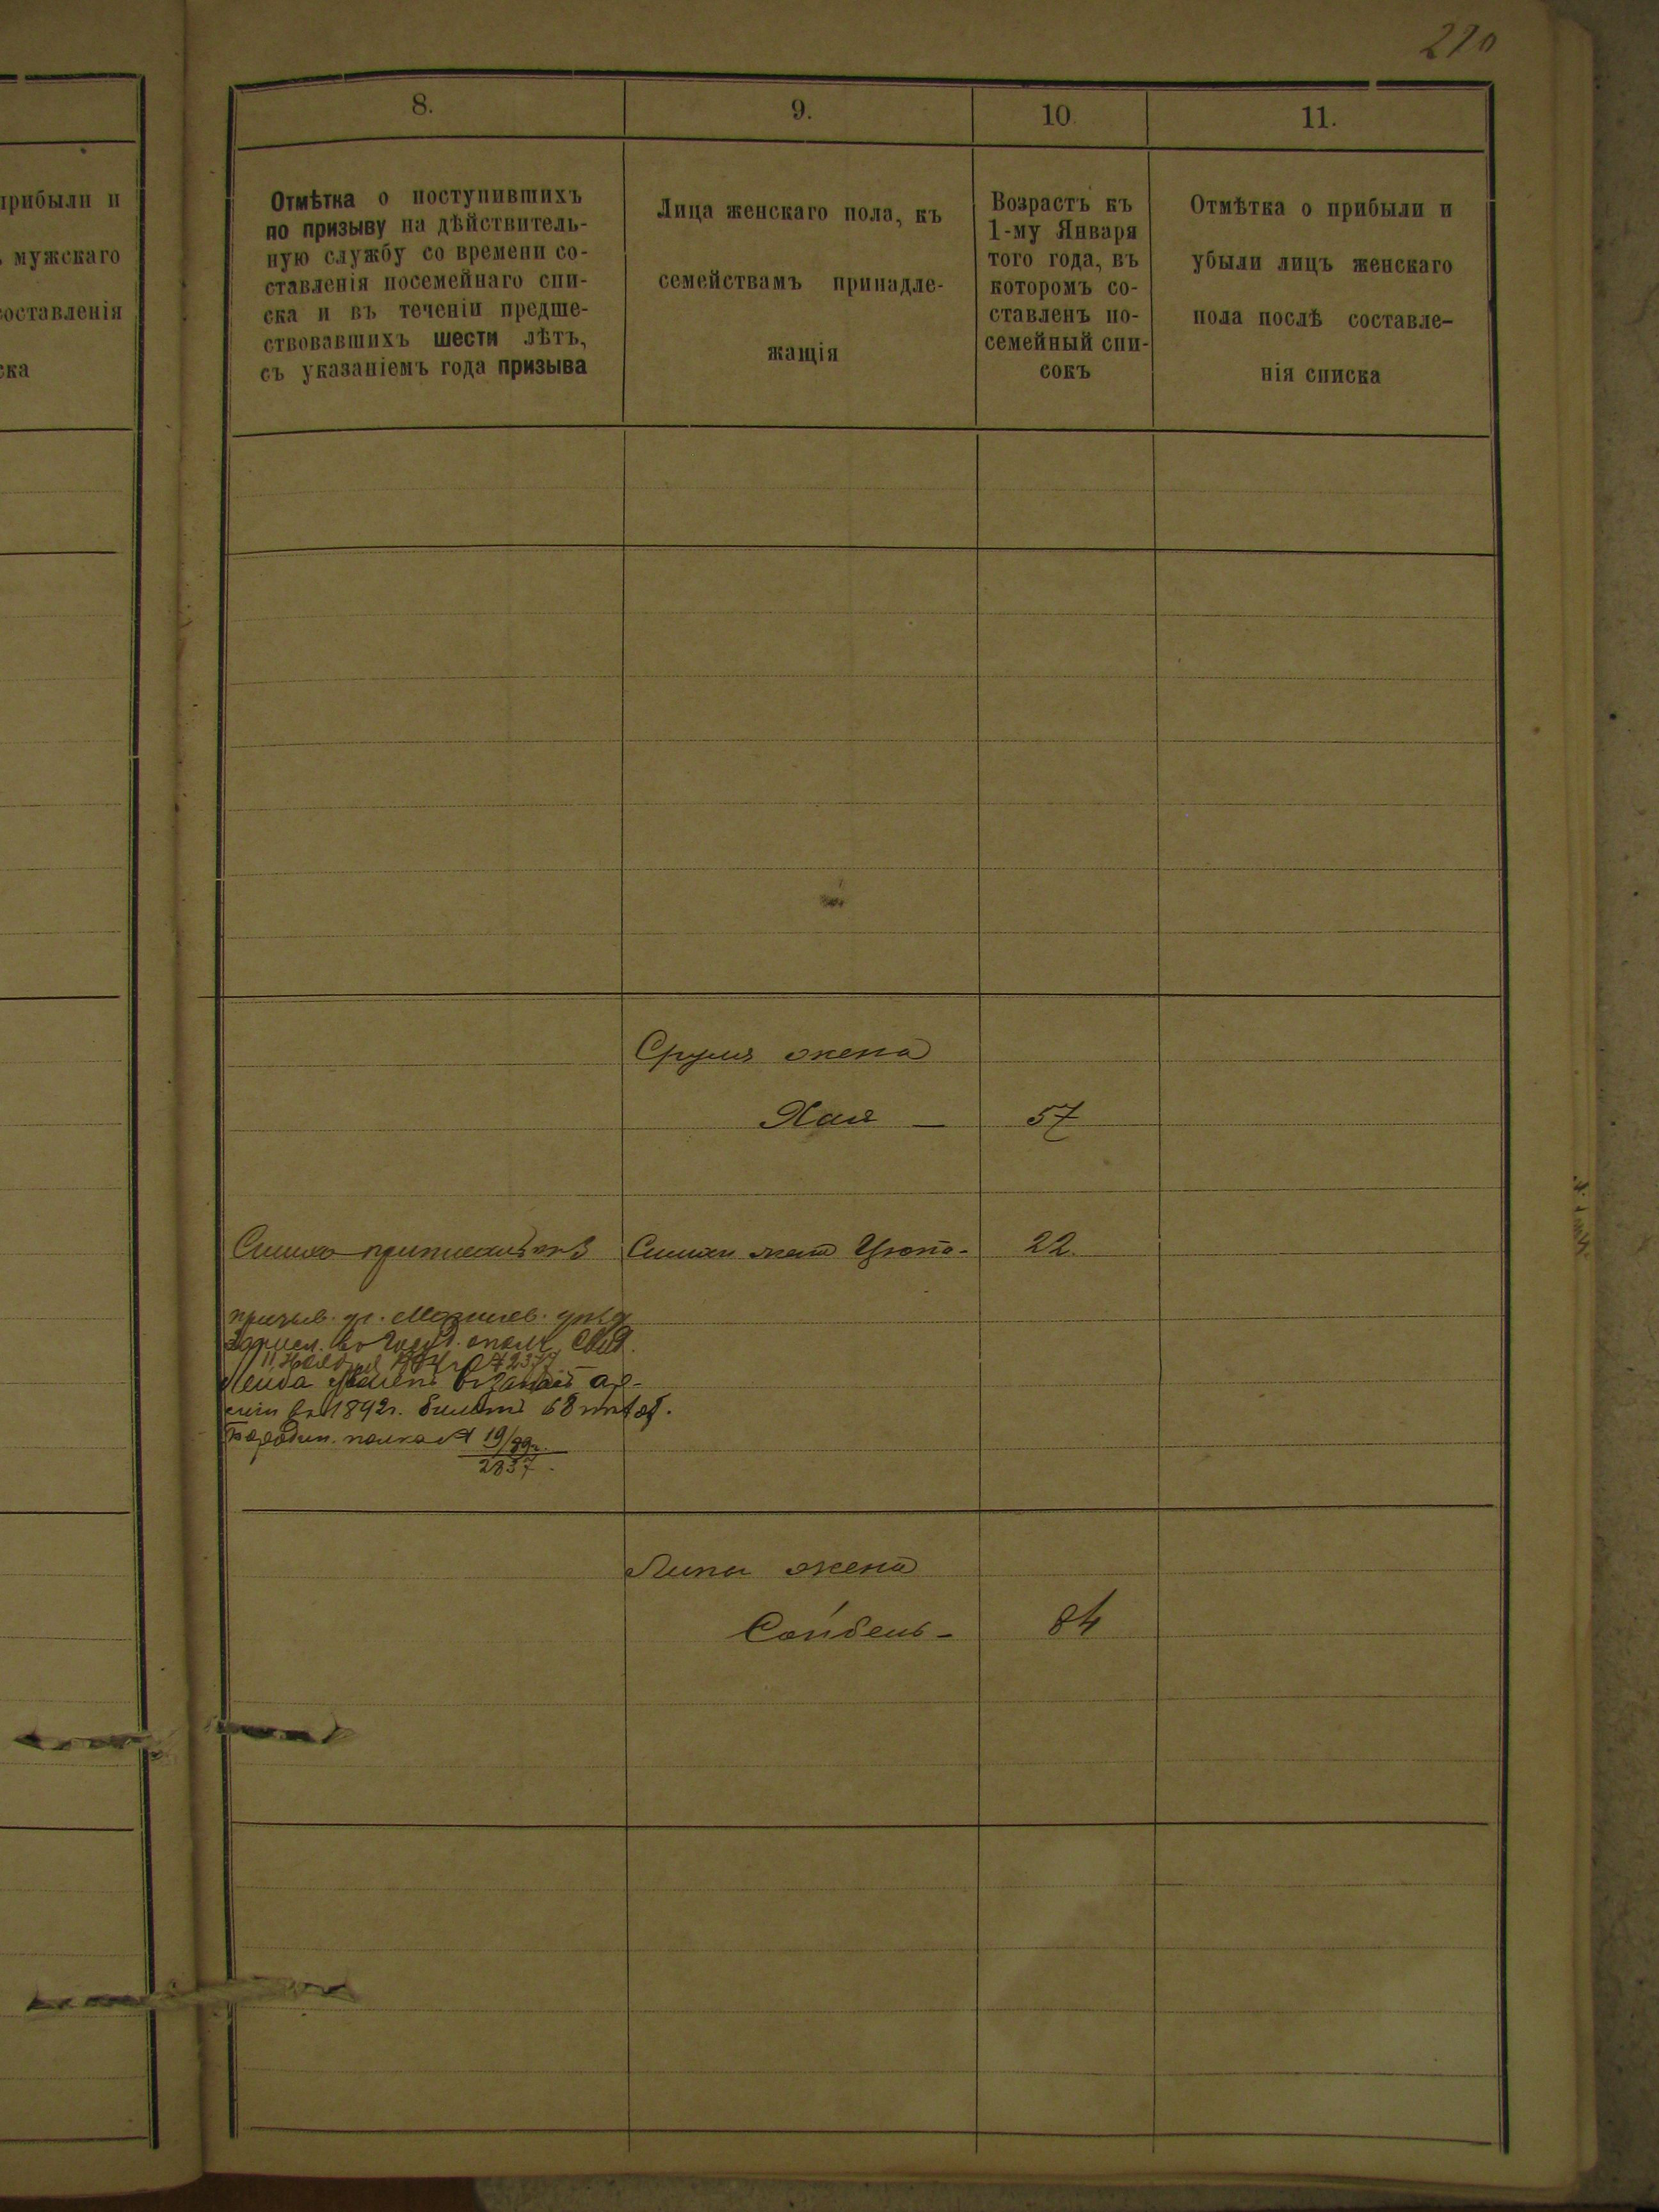 210
прибыли и
мужскаго
составленія
ска
8.
9.
10.
11.
Отмѣтка о поступившихъ
по призыву на дѣйствитель-
ную службу со времени со-
ставленія посемейнаго спи-
ска и въ теченіи предше-
ствовавшихъ шести лѣтъ,
съ указаніемъ года призыва
Лица женскаго пола, къ
семействамъ принадле-
жащія
Возрастъ къ
1-му Января
того года, въ
которомъ со-
ставленъ по-
семейный спи-
сокъ
Отмѣтка о прибыли и
убыли лицъ женскаго
пола послѣ составле-
нія списка
Сруля жена
Хая — 57
Симха
Симхи жена 22.
призыв. уч. Могилев. уѣзд
Зачисл. во ополч. Свид.
2377
Лейба
въ 1892г. билетъ 68
Бородин. полка № 19/89г.
2837.
Липы жена
84